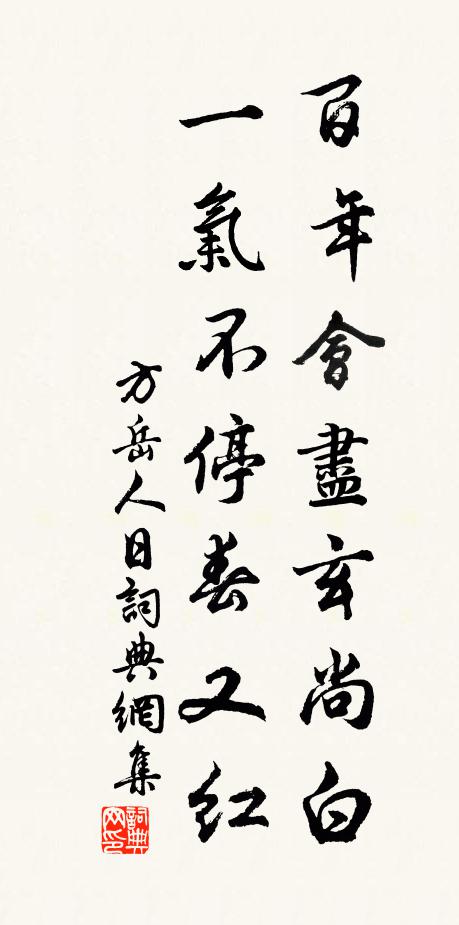 百年會盡玄尚白
一氣不停春又紅
方岳人日詞典網集
詞典网印